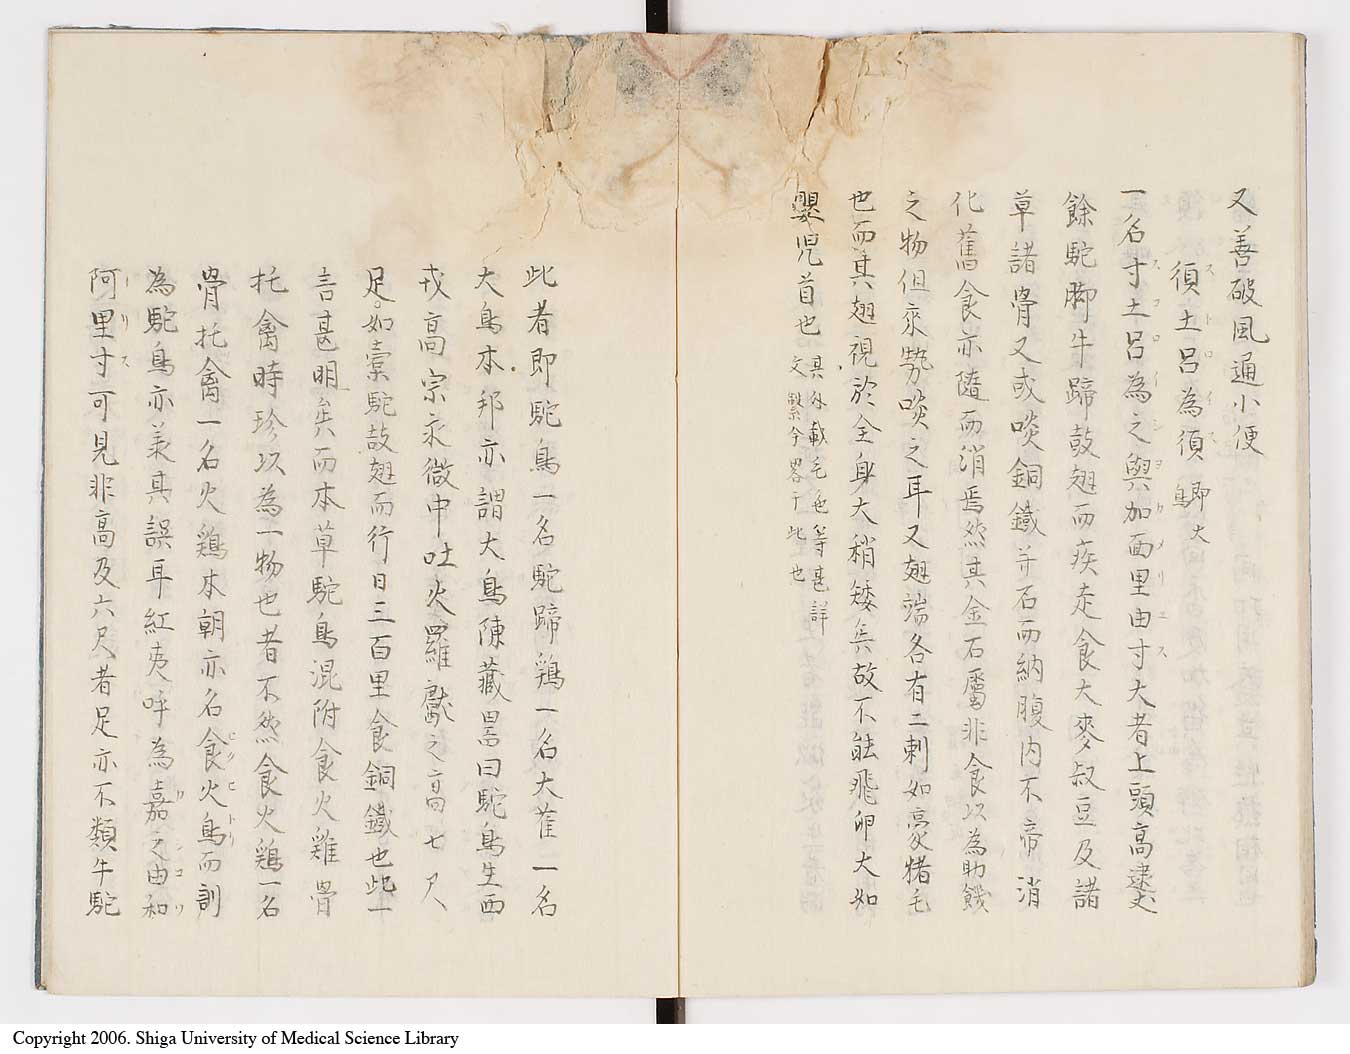 又善破風通小便
須土呂為須 即大鳥
ストロイス
一名寸土呂為之與加面里由寸大者上頭高逮丈
スコロイシヨカメリユス
餘駝脚牛蹄鼓翅而疾走食大麥叔豆及諸
草諸骨又或啖銅鐵并石而納腹內不啻消
化舊食亦隨而消焉然其金石屬非食以為助饑
之物但乘勢啖之耳又翅端各有二刺如豪猪毛
也而其翅視於全身大稍矮矣故不能飛卵大如
嬰児首也
其外載毛色等甚詳
文繁今畧于此也
此者即駝鳥一名駝蹄鶏一名大雀一名
大鳥本邦亦謂大鳥陳藏噐曰駝鳥生西
戎高宗永徽中吐火羅獻之高七尺
足如橐駝鼓翅而行日三百里食銅鐵也此一
言甚明矣而本草駝鳥混附食火雞骨
托禽時珍以為一物也者不然食火鶏一名
骨托禽一名火鶏本朝亦名食火鳥而訓
ヒクヒトリ
為駝鳥亦羕其誤耳紅夷呼為嘉之由和
カシユワ
阿里寸可見非高及六尺者足亦不類牛駝
アリス
Copyright 2006. Shiga University of Medical Science Library